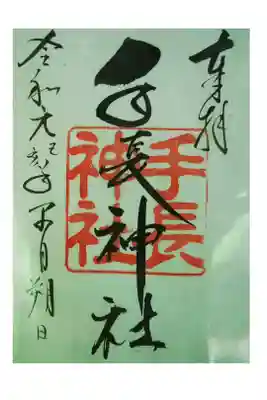 奉拝
手長神社
手長
神社
令和元 月朔日